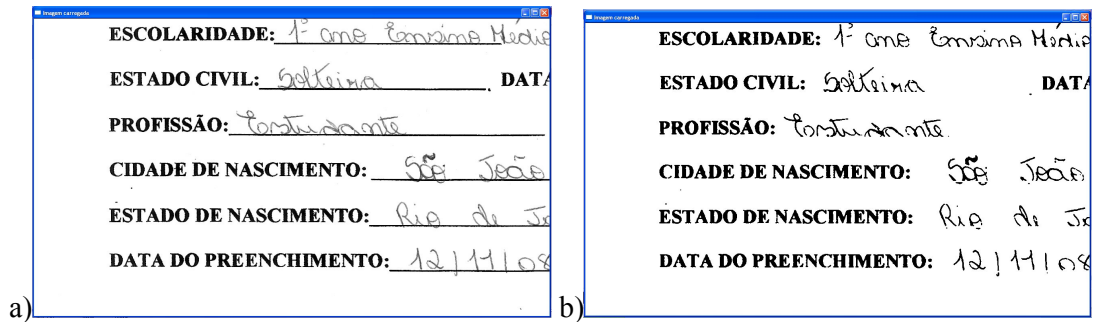 Imagem carregada
ESCOLARIDADE: 1º ano Ensino Médio
ESTADO CIVIL: Solteira. DATA
PROFISSÃO: Estudante
CIDADE DE NASCIMENTO: São João
ESTADO DE NASCIMENTO: Rio de Ja
DATA DO PREENCHIMENTO: 12/11/08
a)
Imagem carregada
ESCOLARIDADE: 1º ano Ensino Médio
ESTADO CIVIL: Solteira . DATA
PROFISSÃO: Estudante
CIDADE DE NASCIMENTO: São João
ESTADO DE NASCIMENTO: Rio de Ja
DATA DO PREENCHIMENTO: 12/11/08
b)